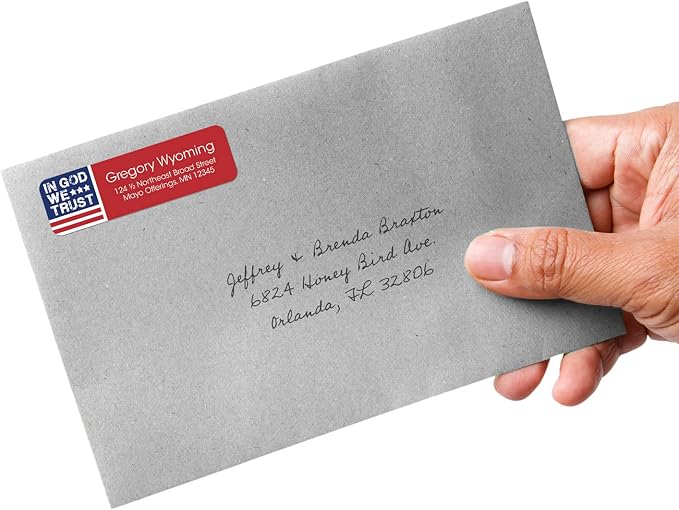 IN GOD
WE
TRUST
Gregory Wyoming
124 ½ Northeast Broad Street
Mayo Offerings, MN 12345
Jeffrey & Brenda Braxton
6824 Honey Bird Ave.
Orlanda, FL 32806